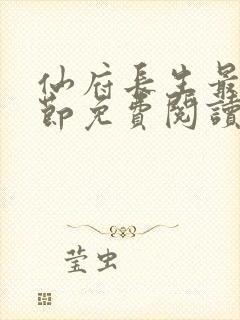 仙府長生最
節免費閱讀
莹虫